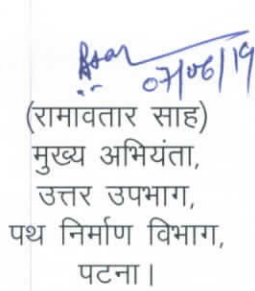 07/06/19
(रामावतार साह)
मुख्य अभियंता,
उत्तर उपभाग,
पथ निर्माण विभाग,
पटना।